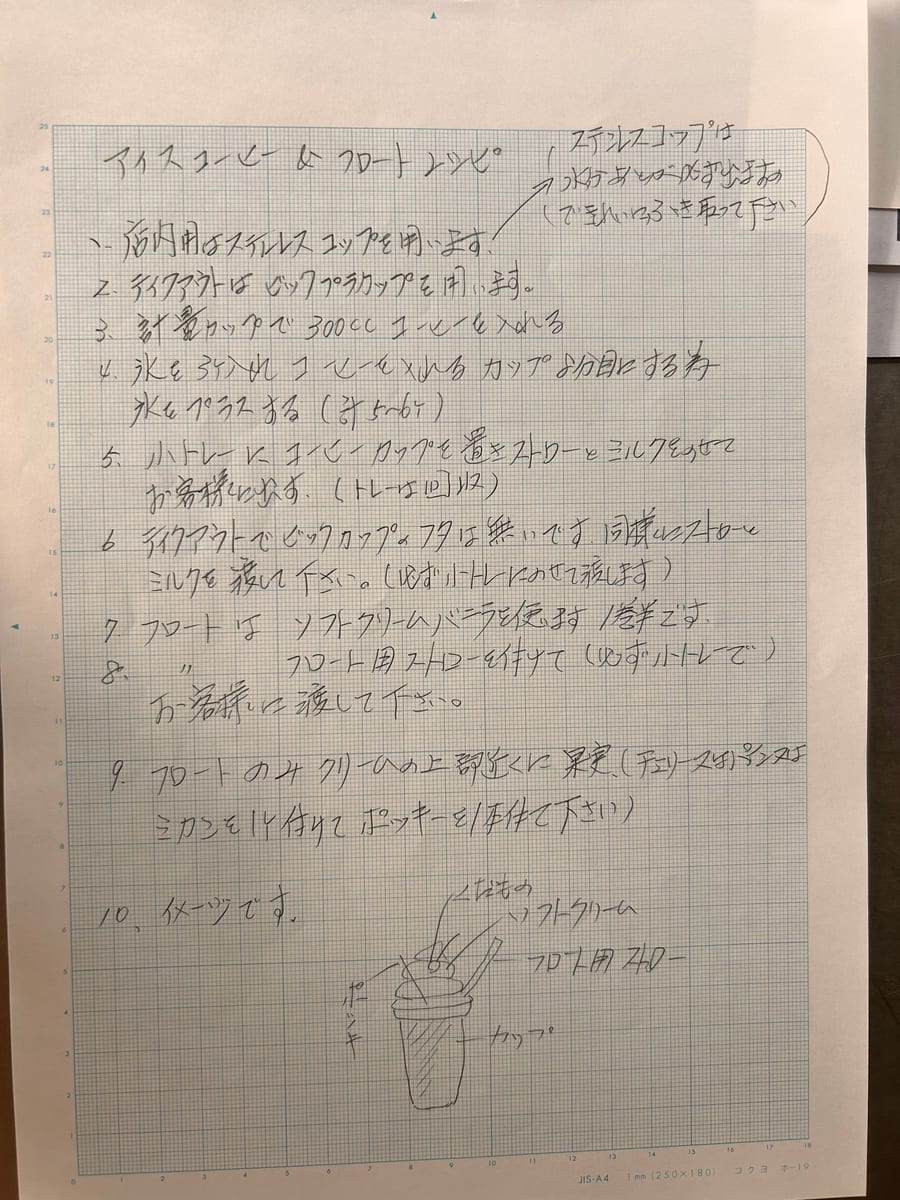 アイスコーヒー & フロートレシピ
ステンレスコップは
水分あとが必ず出ますの
できれいにふき取って下さい
1. 店内用はステンレスコップを用います。
2. テイクアウトはビックプラカップを用います。
3. 計量カップで300ccコーヒーを入れる
4. 氷を3ケ入れコーヒーを入れるカップ8分目にする為
氷をプラスする(計5~6ケ)
5. 小トレーにコーヒーカップを置きストローとミルクをのせて
お客様に出す.(トレーは回収)
6 テイクアウトでビックカップのフタは無いです.同様にストローと
ミルクを渡して下さい。(必ず小トレーにのせて渡します)
7. フロートは ソフトクリームバニラを使ます 1巻半です.
8. 〃 フロート用ストローを付けて(必ず小トレーで)
お客様に渡して下さい。
9. フロートのみクリームの上部近くに果実,(チェリー又は)
ミカンを1ケ付けてポッキーを1本付て下さい)
10、イメージです.
くだもの
ソフトクリーム
フロート用ストロー
ポッキー
カップ
25
24
23
22
21
20
19
18
17
16
15
14
13
12
11
10
9
8
7
6
5
4
3
2
1
0 1 2 3 4 5 6 7 8 9 10 11 12 13 14 15 16 17 18
JIS-A4 1mm (250×180) コクヨ ホ-19